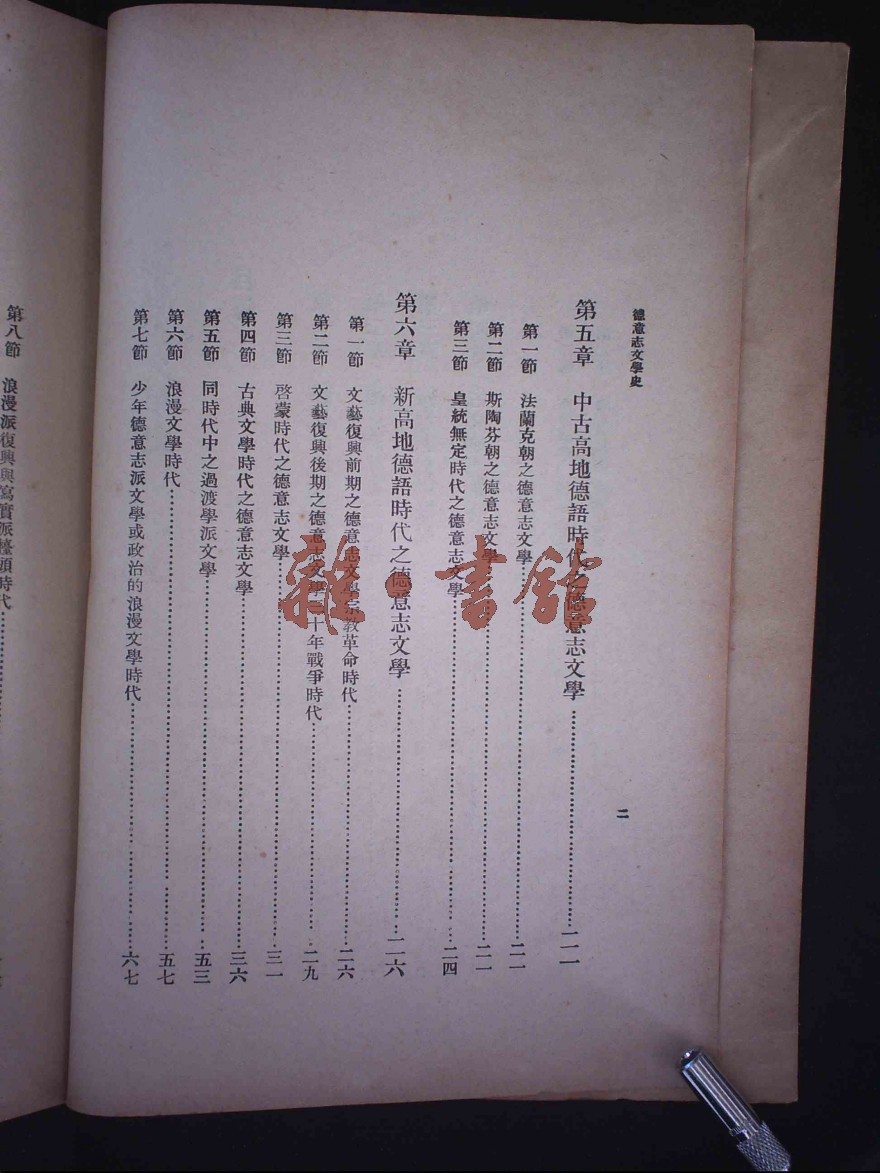 德意志文學史
二
第五章 中古高地德語時代之德意志文學……二一
第一節 法蘭克朝之德意志文學……二一
第二節 斯陶芬朝之德意志文學……二一
第三節 皇統無定時代之德意志文學……二四
第六章 新高地德語時代之德意志文學……二六
第一節 文藝復興前期之德意志文學宗教革命時代……二六
第二節 文藝復興後期之德意志文學 十年戰爭時代……二九
第三節 啓蒙時代之德意志文學……三一
第四節 古典文學時代之德意志文學……三六
第五節 同時代中之過渡學派文學……五三
第六節 浪漫文學時代……五七
第七節 少年德意志派文學或政治的浪漫文學時代……六七
第八節 浪漫派復興與寫實派擡頭時代……
雜·書館